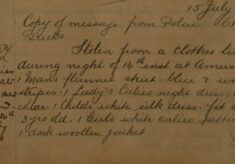 15 July
Copy of message from Police
Bucks
Stolen from a clothes li
during night of 14th inst at Amers
1 Mans flannel shirt blue & w
stripes 1 Lady's Calico night dress
1 Child's white silk dress fit
3 yrs old 1 Girls white calico
1 dark woollen jacket